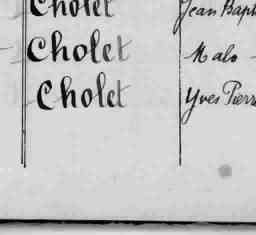 Cholet Jean Bap
Cholet Malo -
Cholet Yves Pierre